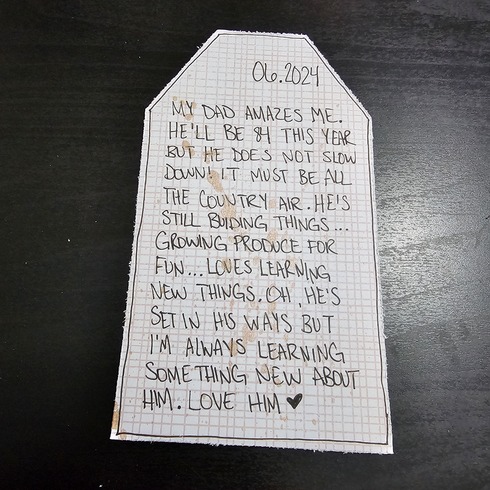 06.2024
MY DAD AMAZES ME.
HE'LL BE 84 THIS YEAR
BUT HE DOES NOT SLOW
DOWN! IT MUST BE ALL
THE COUNTRY AIR. HE'S
STILL BUIDING THINGS...
GROWING PRODUCE FOR
FUN... LOVES LEARNING
NEW THINGS. OH, HE'S
SET IN HIS WAYS BUT
I'M ALWAYS LEARNING
SOMETHING NEW ABOUT
HIM. LOVE HIM ♥